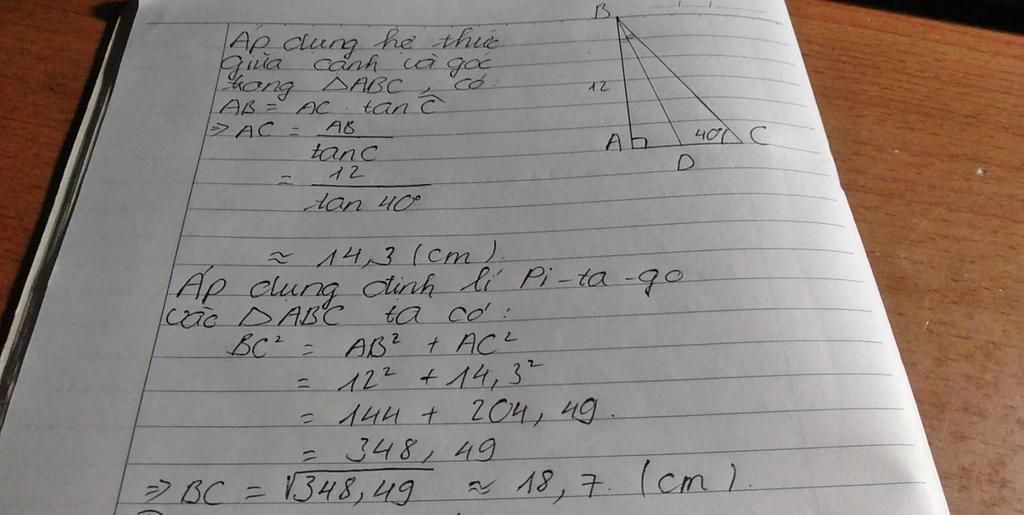 Áp dụng hệ thức
giữa cạnh và góc
trong △ABC, có:
AB = AC . tan Ĉ
⇒ AC = AB / tan C
= 12 / tan 40°
≈ 14,3 (cm)
Áp dụng định lí Pi-ta-go
vào △ABC ta có:
BC² = AB² + AC²
= 12² + 14,3²
= 144 + 204,49.
= 348,49
⇒ BC = √348,49 ≈ 18,7 (cm).
B
12
A
40°
C
D